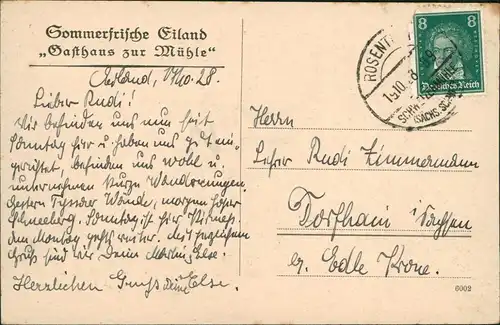 Sommerfrische Eiland
„Gasthaus zur Mühle“
Eiland, 28.
Lieber Rudi!
Wir befinden uns nun seit
Sonntag hier u. haben uns gut ein-
gerichtet, befinden uns wohl u.
unternehmen kurze Wanderungen.
Gestern Tyssaer Wände, morgen hoher
Schneeberg. Sonntag ist hier Kirmeß.
Am Montag geht's weiter. Mit herzlichem
Gruß sind wir Deine Else.
Herzlichen Gruß Deine Else.
8
8
Deutsches Reich
ROSENTH
15.10.28
SCHW
(SÄCHS. SCHW
Herrn
Lehrer Rudi Zimmermann
Dorfhain i/Sachsen
Edle Krone.
6002